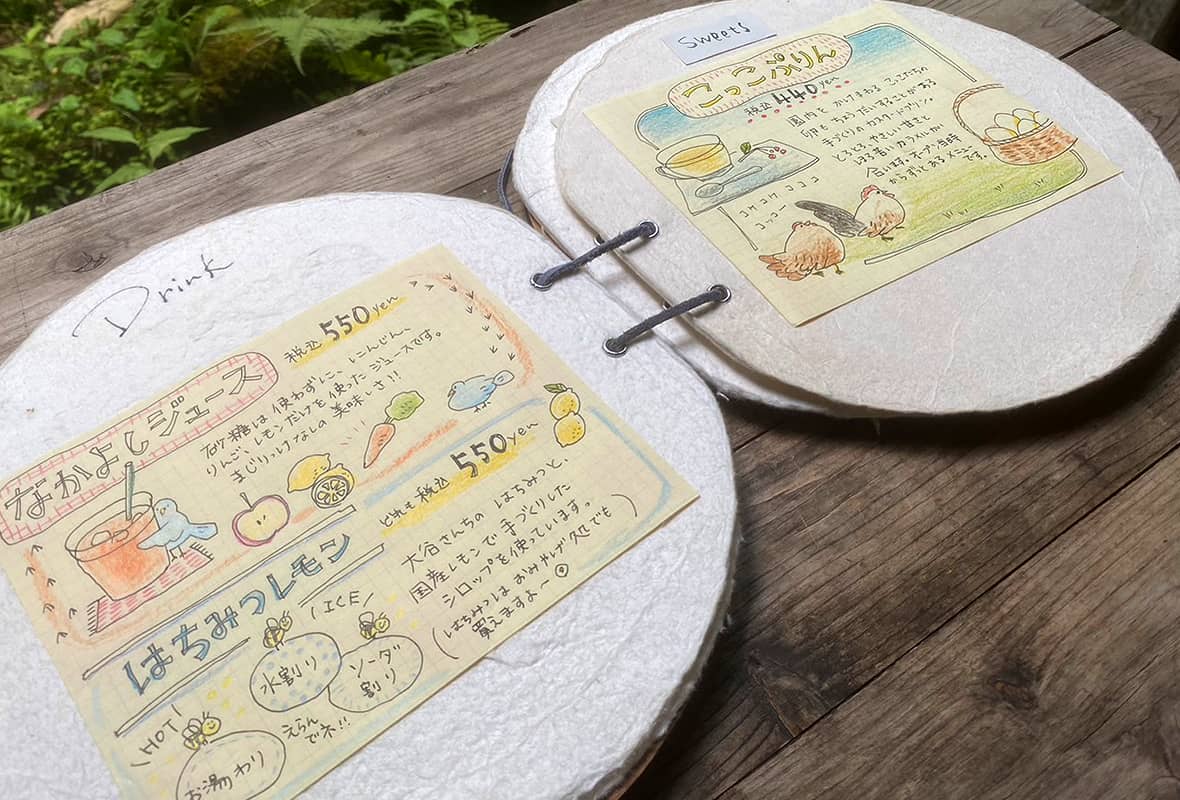 Drink
なかよしジュース
税込 550yen
砂糖は使わずに、にんじん、
りんご、レモンだけを使ったジュースです。
まじりっけなしの美味しさ!!
はちみつレモン
どれも税込 550yen
大谷さんちの はちみつと、
国産レモンで手づくりした
シロップを使っています。
(はちみつはおみやげ処でも
買えますよー)
ICE
水割り
ソーダ
割り
HOT!
お湯わり
えらん
でネ!!
Sweets
こっこぷりん
税込 440yen
園内を かけまわる こっこたちの
卵を ちょうだいすることがある
手づくりの カスタードプリン。
とろとろ やさしい甘さと
ほろ苦いカラメルが
合います。オープン当時
からずっとあるメニュー
です。
コケコケ ココココ
コッコー